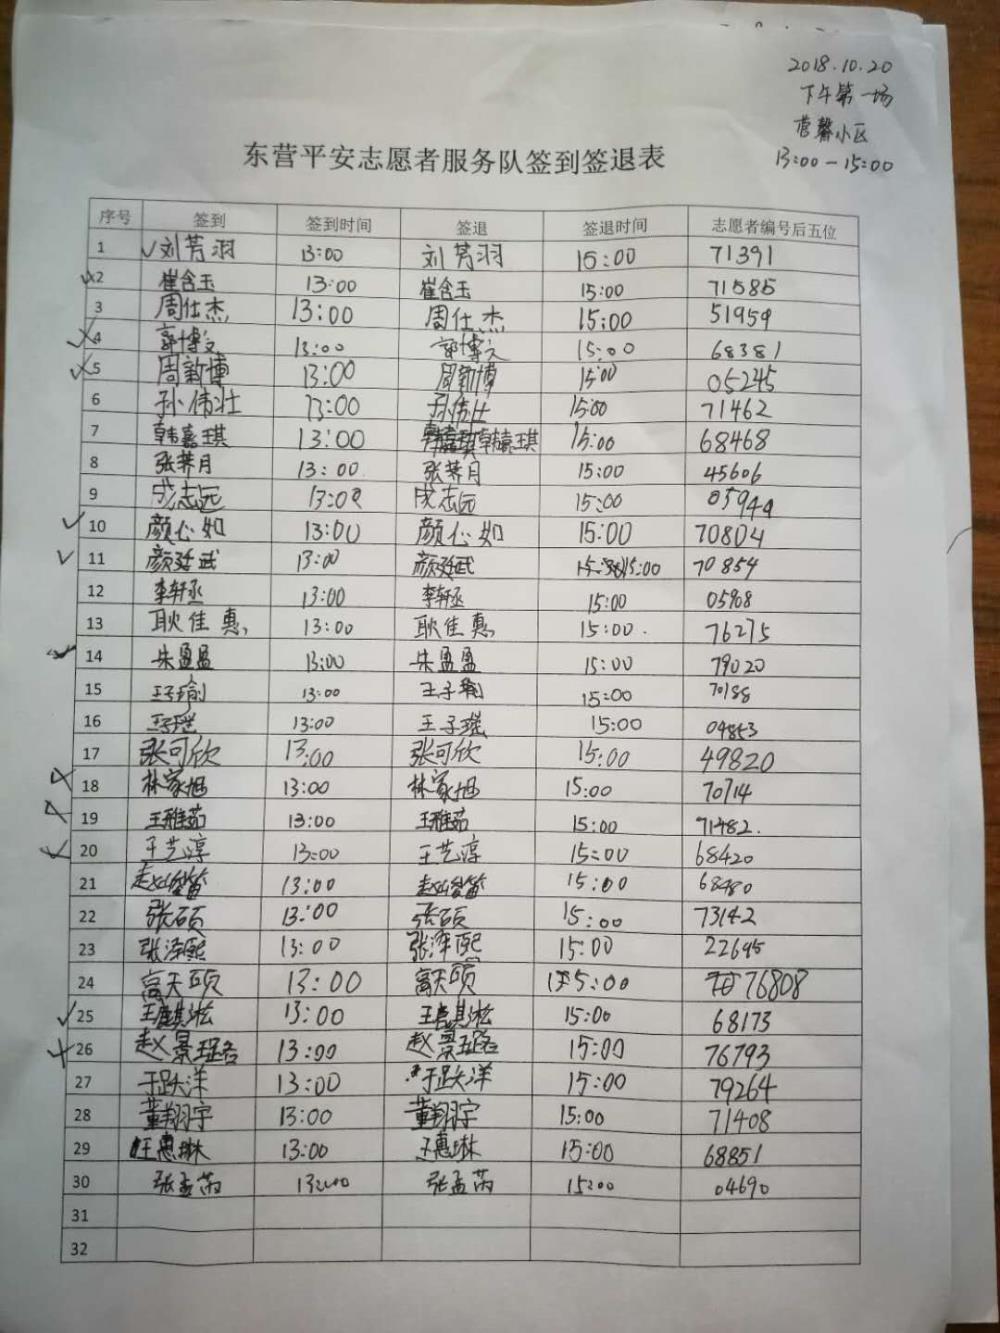 2018.10.20
下午第一场
营馨小区
13:00-15:00
东营平安志愿者服务队签到签退表
序号 签到 签到时间 签退 签退时间 志愿者编号后五位
1 刘芳羽 13:00 刘芳羽 15:00 71391
2 崔含玉 13:00 崔含玉 15:00 71585
3 周仕杰 13:00 周仕杰 15:00 51959
4 郭博文 13:00 郭博文 15:00 68381
5 周新博 13:00 周新博 15:00 05245
6 孙伟壮 13:00 孙伟壮 15:00 71462
7 韩嘉琪 13:00 韩嘉琪 15:00 68468
8 张荞月 13:00 张荞月 15:00 45606
9 成志远 13:00 成志远 15:00
10 颜心如 13:00 颜心如 15:00 70804
11 颜廷武 13:00 颜廷武 15:00 70854
12 李轩丞 13:00 李轩丞 15:00
13 耿佳惠 13:00 耿佳惠 15:00. 76275
14 朱盈盈 13:00 朱盈盈 15:00 79020
15 王子瑜 13:00 王子瑜 15:00 70188
16 王子瑶 13:00 王子瑶 15:00
17 张可欣 13:00 张可欣 15:00 49820
18 林家旭 13:00 林家旭 15:00 70714
19 王雅茹 13:00 王雅茹 15:00 71482.
20 王艺淳 13:00 王艺淳 15:00 68420
21 13:00 15:00 68480
22 张硕 13:00 张硕 15:00 73142
23 张泽熙 13:00 张泽熙 15:00 22695
24 高天硕 13:00 高天硕 15:00 76808
25 王麒淞 13:00 王麒淞 15:00 68173
26 赵景珞 13:00 赵景珞 15:00 76793
27 于跃洋 13:00 于跃洋 15:00 79264
28 董翔宇 13:00 董翔宇 15:00 71408
29 王惠琳 13:00 王惠琳 15:00 68851
30 张孟芮 13:00 张孟芮 15:00 04690
31
32